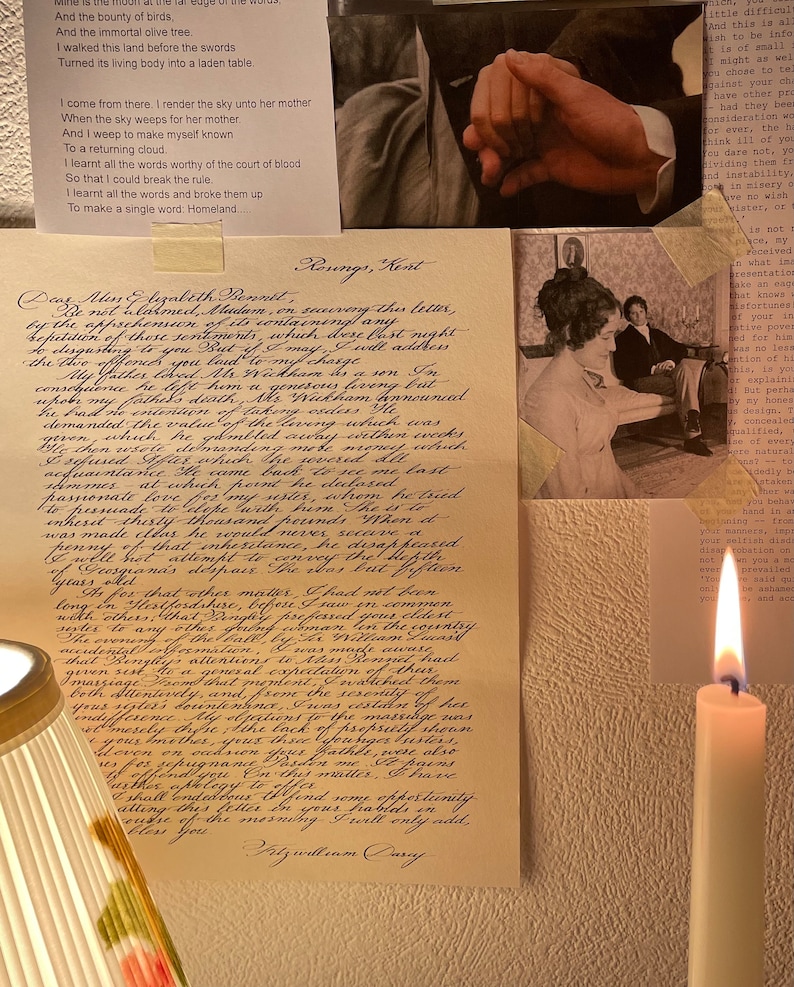 Mine is the moon at the far edge of the words,
And the bounty of birds,
And the immortal olive tree.
I walked this land before the swords
Turned its living body into a laden table.
I come from there. I render the sky unto her mother
When the sky weeps for her mother.
And I weep to make myself known
To a returning cloud.
I learnt all the words worthy of the court of blood
So that I could break the rule.
I learnt all the words and broke them up
To make a single word: Homeland....
Rosings, Kent
Dear Miss Elizabeth Bennet,
Be not alarmed, Madam, on receiving this letter,
by the apprehension of its containing any
repetition of those sentiments, which were last night
so disgusting to you But if I may, I will address
the two offences you laid to my charge
My father loved Mr. Wickham as a son In
consequence he left him a generous living but
upon my father's death, Mr. Wickham announced
he had no intention of taking orders He
demanded the value of the living which was
given, which he gambled away within weeks
He then wrote demanding more money which
I refused After which, he severed all
acquaintance He came back to see me last
summer at which point he declared
passionate love for my sister, whom he tried
to persuade to elope with him She is to
inherit thirty thousand pounds When it
was made clear he would never receive a
penny of that inheritance, he disappeared
I will not attempt to convey the depth
of Georgiana's despair She was but fifteen
years old
As for that other matter, I had not been
long in Hertfordshire, before I saw in common
with others, that Bingley preferred your eldest
sister to any other young woman in the country
The evening of the ball, by Sir William Lucas's
accidental information, I was made aware
that Bingley's attentions to Miss Bennet had
given rise to a general expectation of their
marriage From that moment, I watched them
both attentively, and, from the serenity of
your sister's countenance, I was certain of her
indifference. My objections to the marriage was
not merely those, the lack of propriety shown
your mother, your three younger sisters,
even on occasion your father, were also
for repugnance Pardon me It pains
to offend you. On this matter, I have
further apology to offer
I shall endeavour to find some opportunity
of putting this letter in your hands in
course of the morning I will only add,
bless you.
Fitzwilliam Darcy
which, you
little difficul
'And this is all
wish to be info
it is of small
might as well
you chose to tel
against your cha
have other pro
-- had they been
consideration wo
for ever, the ha
think ill of you
You dare not, yo
dividing them fr
and instability,
in misery o
have no wish
sister, or t
myself.'
is not n
place, my
received
in what imag
presentation
take an eage
that knows w
misfortunes!
of your in
rative pover
ned for him
was no less
ention of his
this, is you
or explainin
d! But perha
by my hones
s design. T
y, concealed
qualified,
ise of every
were natural
ons? -- to
dedly be
are mistaken
any other wa
had you behav
of your hand in a
-- from
your manners, imp
your selfish disd
disapprobation on
not known you a mo
ever prevailed
'You have said qui
only be ashamed
you, and acc